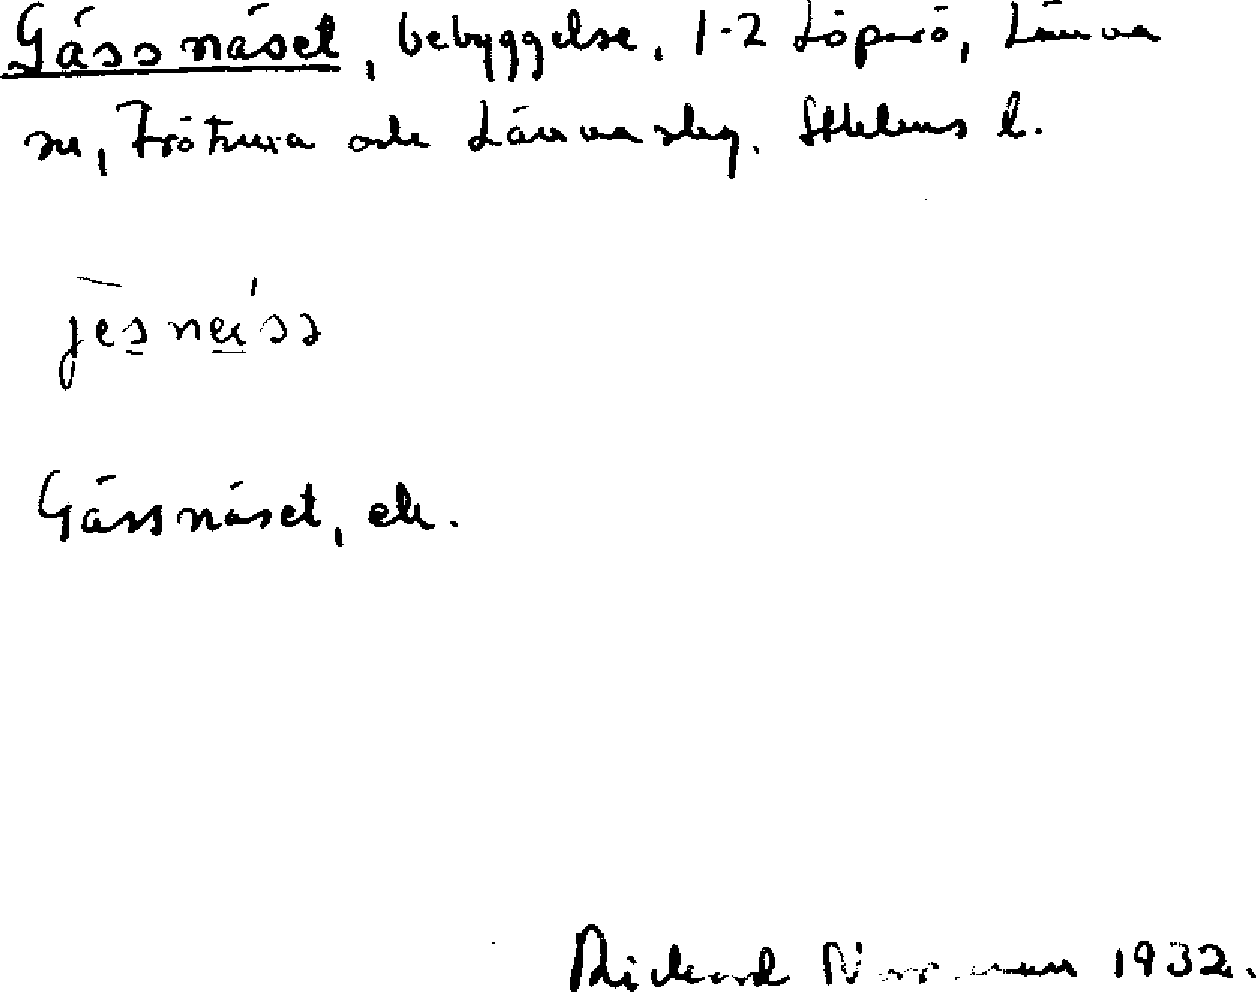 Gässnäset, bebyggelse. 1-2 Löparö, Länna
sn, Frötuna och Länna skg. Sthlms l.
jesnɛ́sə
Gässnäset, ek.
Rickard 1932.